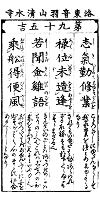 洛東音羽山清水寺
第九十五吉
志氣勤修業
祿位未造逢
若聞金雞語
乘船得便風